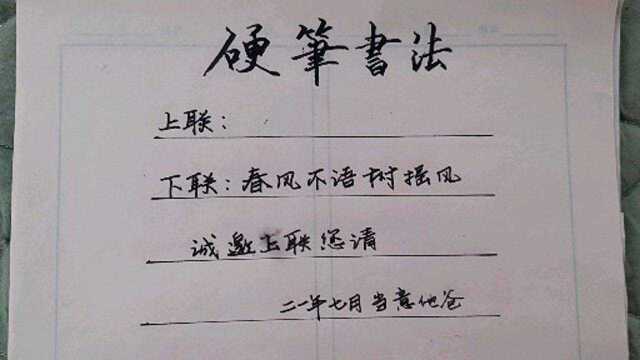 硬筆書法
上联：
下联：春风不语树摇风
诚邀上联您请
二一年七月当意他爸